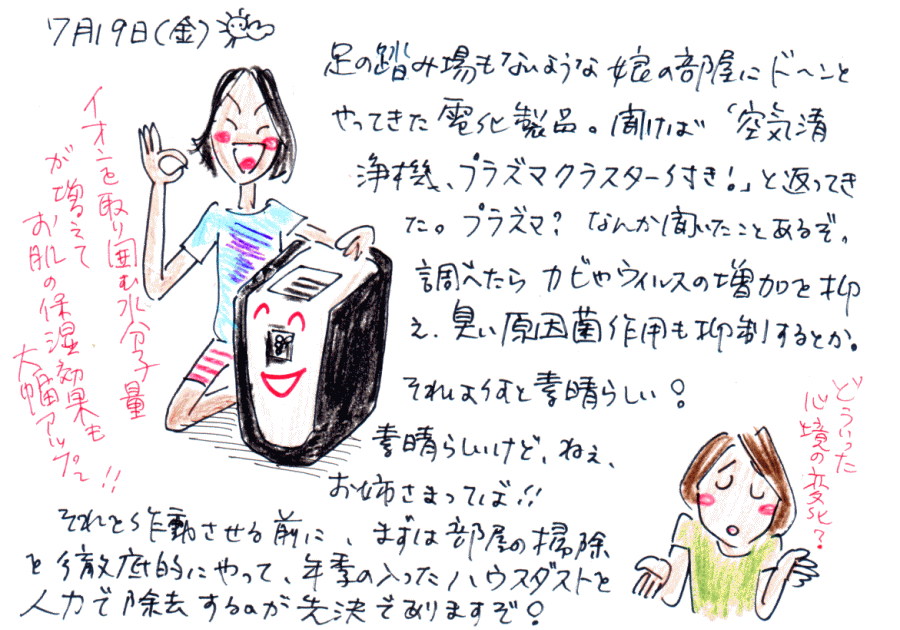 7月19日(金)
足の踏み場もないような娘の部屋にドーンと
やってきた電化製品。聞けば「空気清
浄機、プラズマクラスター付き!」と返ってき
た。プラズマ? なんか聞いたことあるぞ。
調べたらカビやウィルスの増加を抑
え、臭い原因菌作用も抑制するとか。
それはようすと素晴らしい!
素晴らしいけど、ねぇ、
お姉さまってば!!
それを作動させる前に、まずは部屋の掃除
を徹底的にやって、年季の入ったハウスダストを
人力で除去するのが先決でありますぞ!
イオンを取り囲む水分子量
が増えて
お肌の保湿効果も
大幅アップ〜!!
どういった
心境の変化?